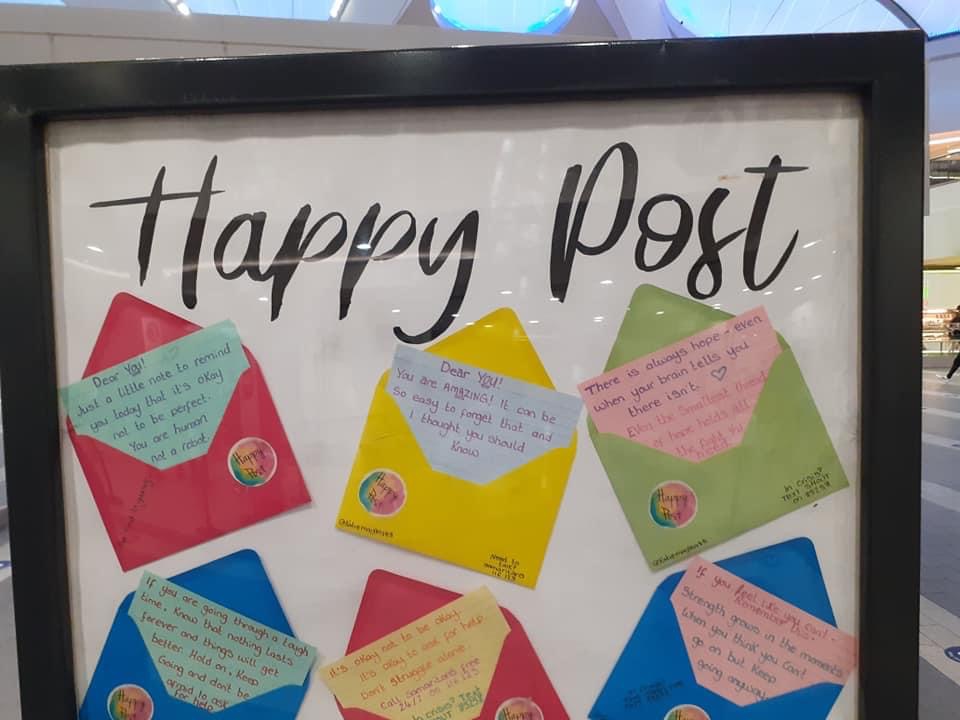 Happy Post
Dear You!
Just a little note to remind
you today that it's okay
not to be perfect.
You are human
not a robot.
Happy
Post
Dear You!
You are AMAZING! It can be
so easy to forget that and
I thought you should
know
Happy
Post
Need to
talk?
Samaritans
116 123
There is always hope - even
when your brain tells you
there isn't.
Even the smallest thread
of hope holds all
Happy
Post
In Crisis?
TEXT SHOUT
on 85258
If you are going through a tough
time, know that nothing lasts
forever and things will get
better. Hold on, keep
going and don't be
afraid to ask
for help
Happy
It's okay not to be okay.
It's okay to ask for help.
Don't struggle alone.
Call Samaritans free
24/7 on 116 123
In crisis? Text
SHOUT
85258
Happy
If you feel like you can't -
Remember this:
Strength grows in the moments
when you think you can't
go on but keep
going anyway.
Happy